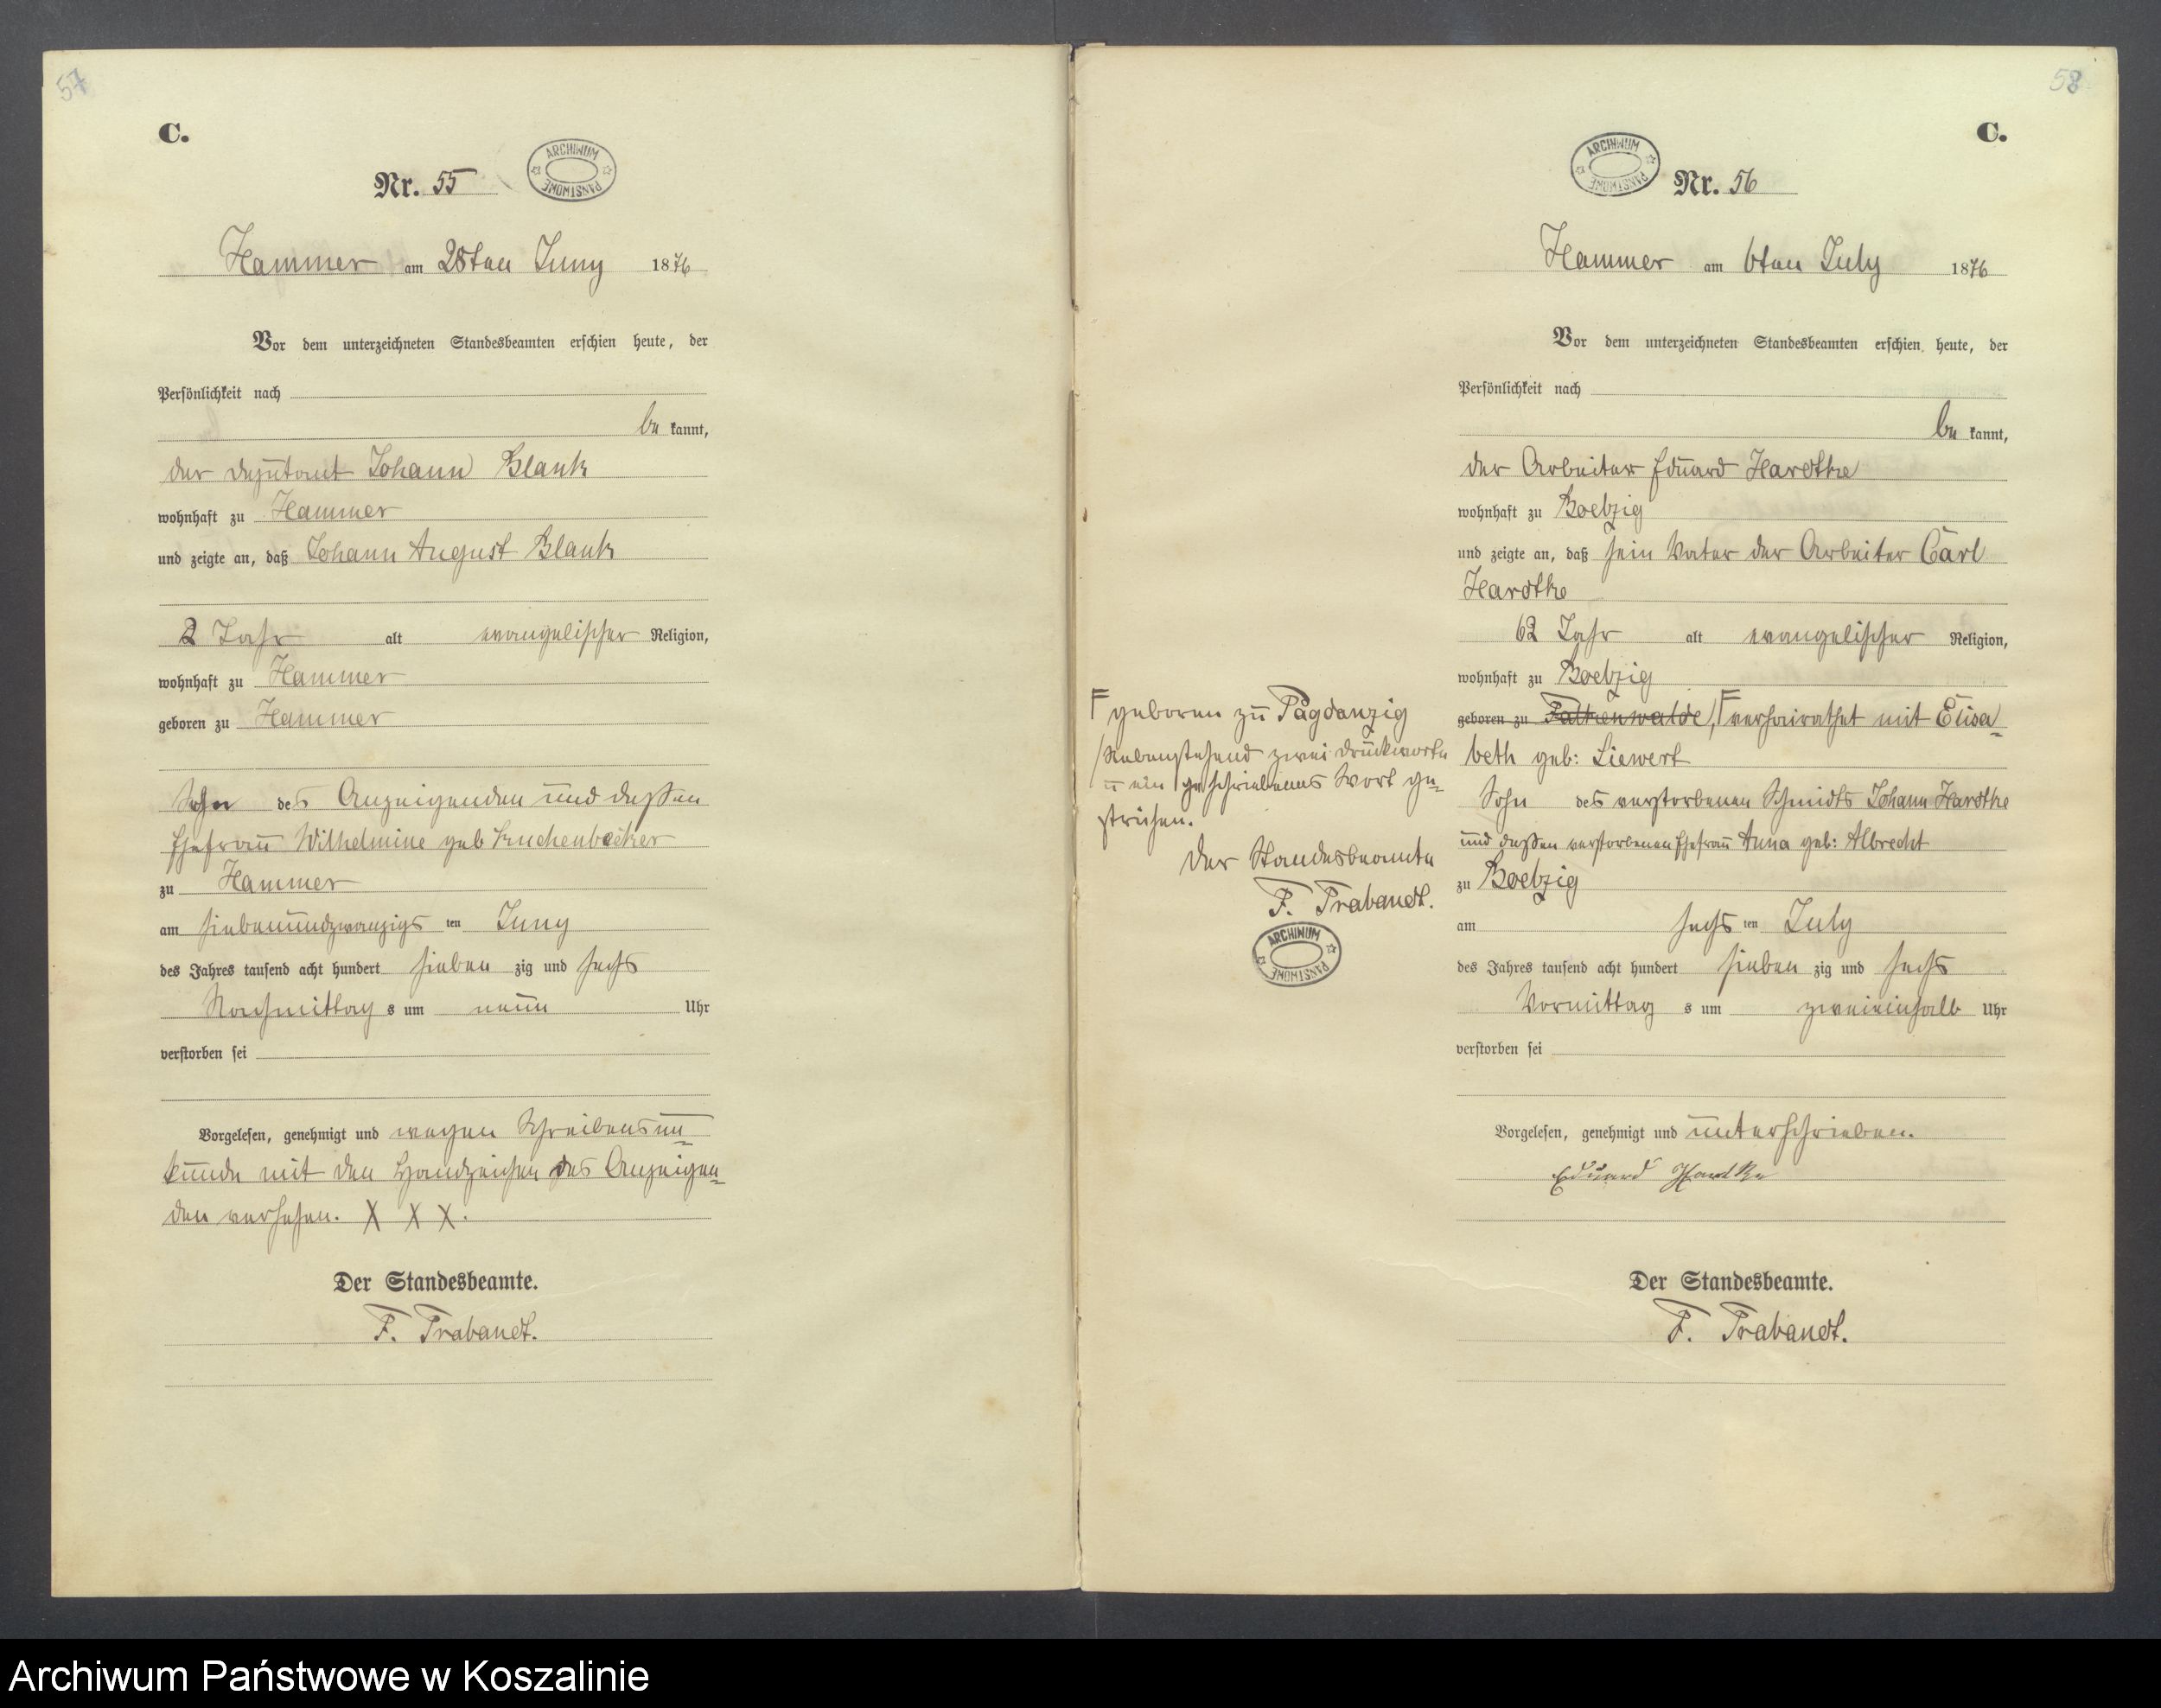 57
C.
Nr. 55
ARCHIWUM PAŃSTWOWE
Hammer am 28ten Juny 1876
Vor dem unterzeichneten Standesbeamten erschien heute, der
Persönlichkeit nach
be kannt,
der Deputant Johann Blank
wohnhaft zu Hammer
und zeigte an, daß Johann August Blank
2 Jahr alt evangelischer Religion,
wohnhaft zu Hammer
geboren zu Hammer
Sohn des Anzeigenden und dessen
Ehefrau Wilhelmine geb Kuchenbecker
zu Hammer
am siebenundzwanzigs ten Juny
des Jahres tausend acht hundert sieben zig und sechs
Nachmittag s um neun Uhr
verstorben sei
Vorgelesen, genehmigt und wegen Schreibensun=
kunde mit den Handzeichen des Anzeigen=
den versehen. X X X.
Der Standesbeamte.
F. Trabandt.
58
C.
ARCHIWUM PAŃSTWOWE
Nr. 56
Hammer am 6ten July 1876
Vor dem unterzeichneten Standesbeamten erschien heute, der
Persönlichkeit nach
be kannt,
der Arbeiter Eduard Hardtke
wohnhaft zu Boetzig
und zeigte an, daß sein Vater der Arbeiter Carl
Hardtke
62 Jahr alt evangelischer Religion,
wohnhaft zu Boetzig
geboren zu Falkenwalde, F verheirathet mit Elisa=
beth geb: Liewert
Sohn des verstorbenen Schmidts Johann Hardtke
und dessen verstorbenen Ehefrau Anna geb: Albrecht
zu Boetzig
am sechs ten July
des Jahres tausend acht hundert sieben zig und sechs
Vormittag s um zweieinhalb Uhr
verstorben sei
Vorgelesen, genehmigt und unterschrieben.
Eduard Hardtke
Der Standesbeamte.
F. Trabandt.
F geboren zu Pagdanzig
/Nebenstehend zwei Druckworte
u ein geschriebenes Wort ge=
strichen.
Der Standesbeamte
F. Trabandt.
ARCHIWUM PAŃSTWOWE
Archiwum Państwowe w Koszalinie